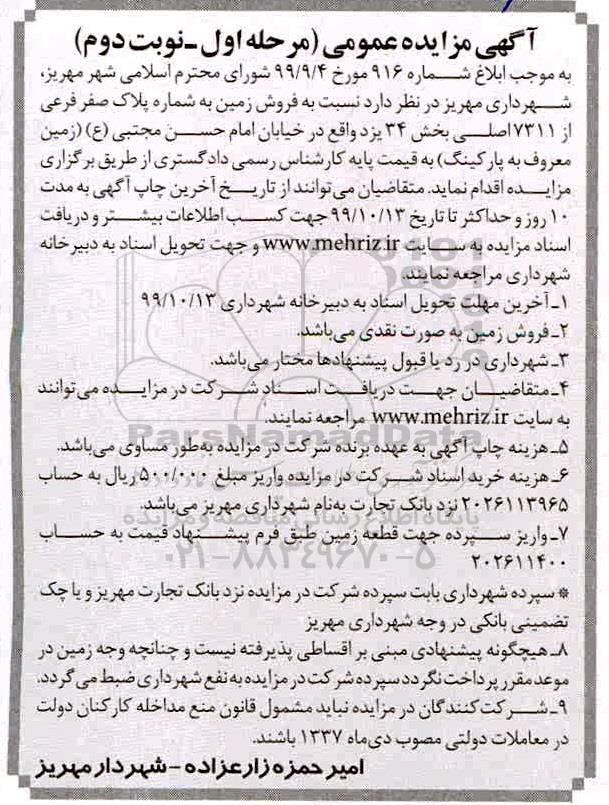 آگهی مزایده عمومی (مرحله اول ـ نوبت دوم)
به موجب ابلاغ شماره ۹۱۶ مورخ ۹۹/۹/۴ شورای محترم اسلامی شهر مهریز،
شهرداری مهریز در نظر دارد نسبت به فروش زمین به شماره پلاک صفر فرعی
از ۷۳۱۱ اصلی بخش ۳۴ یزد واقع در خیابان امام حسن مجتبی (ع) (زمین
معروف به پارکینگ) به قیمت پایه کارشناس رسمی دادگستری از طریق برگزاری
مزایده اقدام نماید. متقاضیان می‌توانند از تاریخ آخرین چاپ آگهی به مدت
۱۰ روز و حداکثر تا تاریخ ۹۹/۱۰/۱۳ جهت کسب اطلاعات بیشتر و دریافت
اسناد مزایده به سایت www.mehriz.ir و جهت تحویل اسناد به دبیرخانه
شهرداری مراجعه نمایند.
۱ـ آخرین مهلت تحویل اسناد به دبیرخانه شهرداری ۹۹/۱۰/۱۳
۲ـ فروش زمین به صورت نقدی می‌باشد.
۳ـ شهرداری در رد یا قبول پیشنهادها مختار می‌باشد.
۴ـ متقاضیان جهت دریافت اسناد شرکت در مزایده می‌توانند
به سایت www.mehriz.ir مراجعه نمایند.
ParsNamadData
۵ـ هزینه چاپ آگهی به عهده برنده شرکت در مزایده به‌طور مساوی می‌باشد.
۶ـ هزینه خرید اسناد شرکت در مزایده واریز مبلغ ۵۰۰/۰۰۰ ریال به حساب
۲۰۲۶۱۱۳۹۶۵ نزد بانک تجارت به‌نام شهرداری مهریز می‌باشد.
پایگاه اطلاع رسانی مناقصه و مزایده
۷ـ واریز سپرده جهت قطعه زمین طبق فرم پیشنهاد قیمت به حساب
۰۲۱-۸۸۳۴۹۶۷۰-۵
۲۰۲۶۱۱۴۰۰
* سپرده شهرداری بابت سپرده شرکت در مزایده نزد بانک تجارت مهریز و یا چک
تضمینی بانکی در وجه شهرداری مهریز
۸ـ هیچگونه پیشنهادی مبنی بر اقساطی پذیرفته نیست و چنانچه وجه زمین در
موعد مقرر پرداخت نگردد سپرده شرکت در مزایده به نفع شهرداری ضبط می‌گردد.
۹ـ شرکت کنندگان در مزایده نباید مشمول قانون منع مداخله کارکنان دولت
در معاملات دولتی مصوب دی‌ماه ۱۳۳۷ باشند.
امیر حمزه زارعزاده - شهردار مهریز